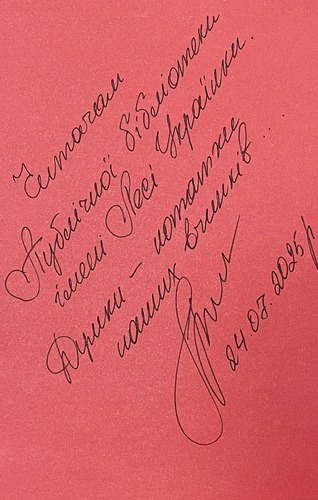 Читачам
Публічної бібліотеки
імені Лесі Українки.
Думки – початки
наших вчинків...
24.07.2025 р